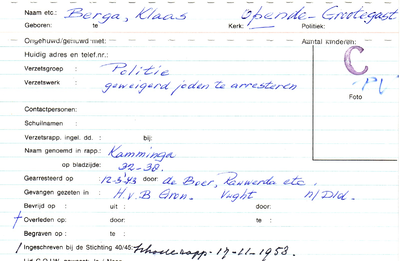 Naam etc.: Berga, Klaas Opende-Grootegast
Geboren: te Kerk: Politiek:
Ongehuwd/gehuwd met: Aantal kinderen:
Huidig adres en telef.nr.:
Verzetsgroep : Politie C
Verzetswerk : geweigerd joden te arresteren
Foto
Contactpersonen:
Schuilnamen :
Verzetsrapp. ingel. dd. : bij:
Naam genoemd in rapp.: Kamminga
op bladzijde: 32-38.
Gearresteerd op : 12-3-'43 door de Beer, Rauwerda etc.
Gevangen gezeten in : H.v.B Gron. Vught n/Dld.
Bevrijd op : uit : door:
† Overleden op: door: te :
Begraven op : te :
† Ingeschreven bij de Stichting 40/45: 17-11-1953.